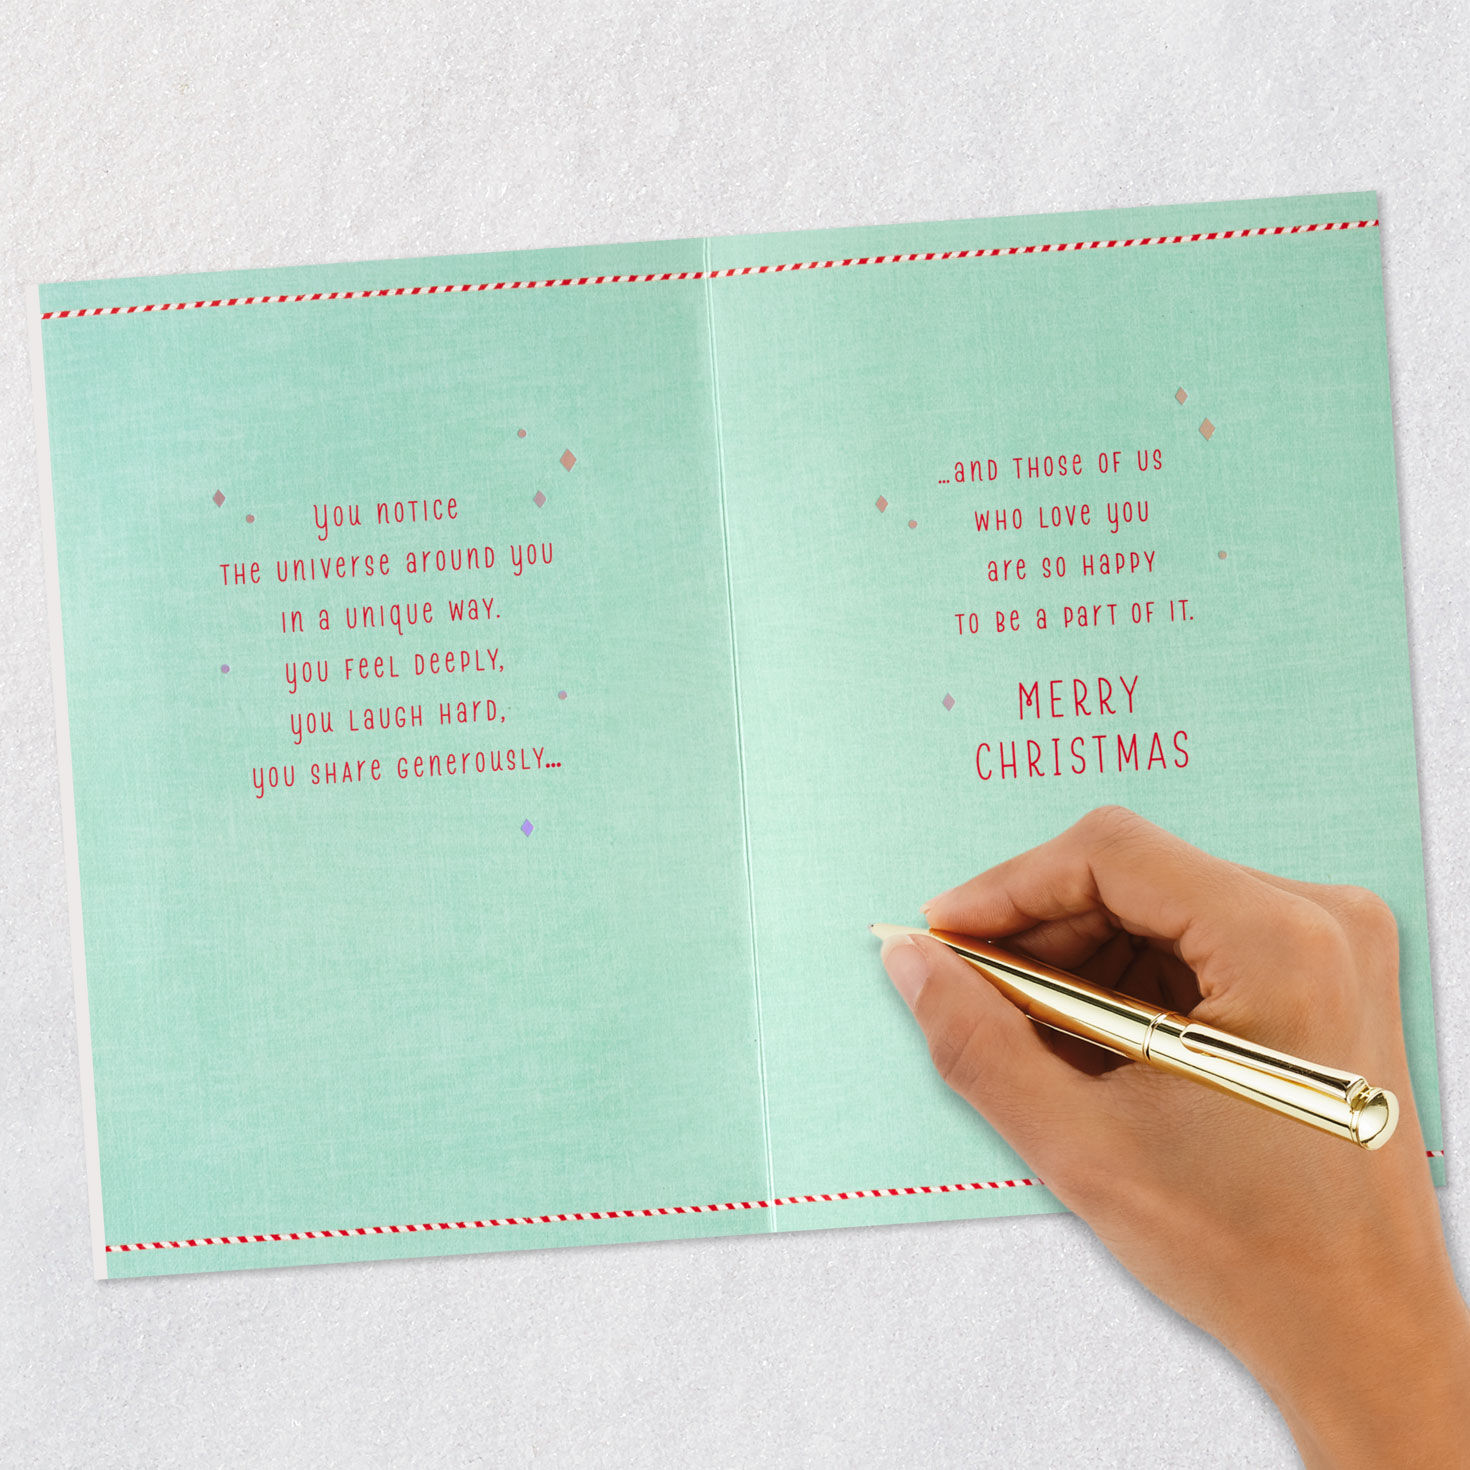 You notice
the universe around you
in a unique way.
You feel deeply,
you laugh hard,
you share generously...
...and those of us
who love you
are so happy
to be a part of it.
MERRY
CHRISTMAS